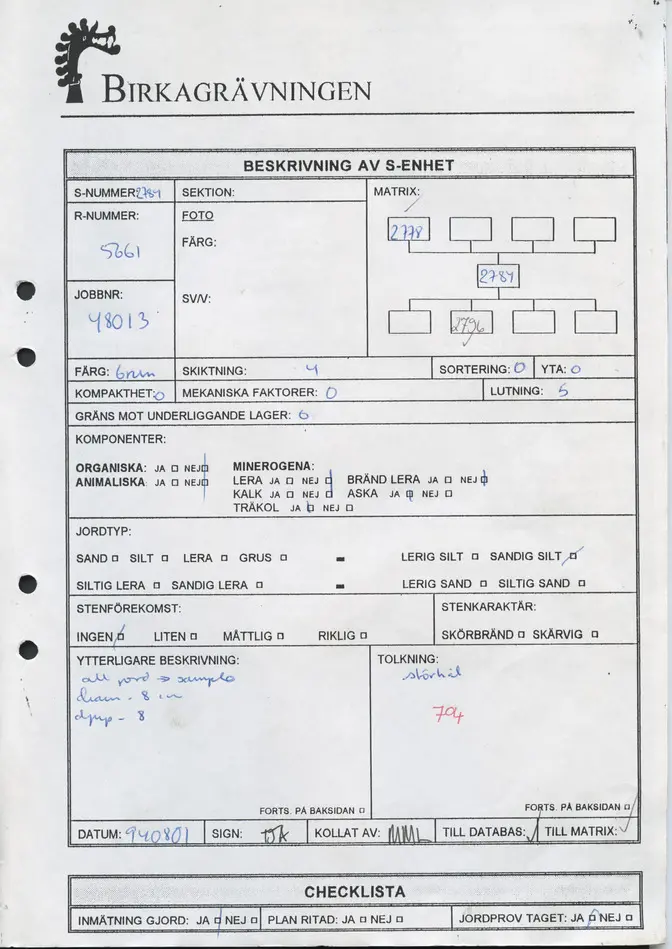 BIRKAGRÄVNINGEN
BESKRIVNING AV S-ENHET
S-NUMMER: 2784 SEKTION: MATRIX:
R-NUMMER: 5661 FOTO
FÄRG:
2778
2784
JOBBNR: 48013 SV/V:
2796
FÄRG: brun SKIKTNING: 4 SORTERING: 0 YTA: 0
KOMPAKTHET: 0 MEKANISKA FAKTORER: 0 LUTNING: 5
GRÄNS MOT UNDERLIGGANDE LAGER: 6
KOMPONENTER:
ORGANISKA: JA □ NEJ □ MINEROGENA:
ANIMALISKA: JA □ NEJ □ LERA JA □ NEJ □ BRÄND LERA JA □ NEJ □
KALK JA □ NEJ □ ASKA JA □ NEJ □
TRÄKOL JA □ NEJ □
JORDTYP:
SAND □ SILT □ LERA □ GRUS □ - LERIG SILT □ SANDIG SILT □
SILTIG LERA □ SANDIG LERA □ - LERIG SAND □ SILTIG SAND □
STENFÖREKOMST: STENKARAKTÄR:
INGEN □ LITEN □ MÅTTLIG □ RIKLIG □ SKÖRBRÄND □ SKÄRVIG □
YTTERLIGARE BESKRIVNING: TOLKNING:
all jord → sample störhål
diam - 8 cm
djup - 8 704
FORTS. PÅ BAKSIDAN □ FORTS. PÅ BAKSIDAN □
DATUM: 940801 SIGN: KOLLAT AV: MML TILL DATABAS: ✓ TILL MATRIX: ✓
CHECKLISTA
INMÄTNING GJORD: JA □ NEJ □ PLAN RITAD: JA □ NEJ □ JORDPROV TAGET: JA □ NEJ □